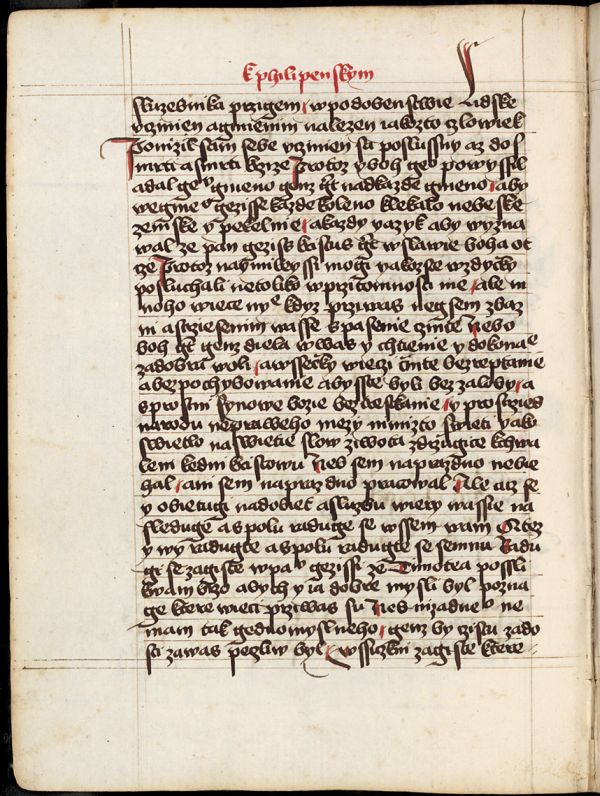 K philipenskym
sluzebnika przigem w podobenstwie Lidske
vczinien a gmienim nalezen iakozto czlowiek
Ponizil sam sebe vczinien sa poslussny az do s
mrti a smrti krzize protoz y boh geho powyssil
a dal gemu gmeno genz gest nad kazde gmeno aby
we gmeno gezisse kazde koleno klekalo nebeske
zemske y pekelnie a kazdy yazyk aby wyzna
wal ze pan gezis kristus gest w slawie boha ot
cze Protoz naymileyssi mogi yakozse wzdycky
posluchali ne toliko w przitomnosti me ale m
noho wiece nynie kdyz przi was neg sem z baz
ni a strziesenim wasse spasenie czinte Nebo
boh gest genz diela w was y chtienie y dokonanie
za dobru woli a wssecky wieczi cinte bez reptanie
a bez pochybowanie abysste byli bez zaloby a
sprosni synowe bozie bez treskanie y prostrzed
narodu neprawého mezy nimizto swieti yako
swietlo na swietie slow ziwota zdrzugice k chwa
lem ke dni kristowu Neb sem naprazdno nebie
hal ani sem naprazdno pracowal Ale acz se
y obietugi nad obiet a sluzbu wiery wassie na
sleduge a spolu radugi se wssem wam O tez
y wy radugte a spolu radugte se se mnu Nadu
gi se zagiste w panu gezissi ze Timotea possli
k wam brzo abych y ia dobre mysli byl pozna
ge ktere wieci przi was su Neb nizadneho ne
mam tak gednomyslneho genz by czistu zado
sti za was pecliw byl wssickni zagiste ktere